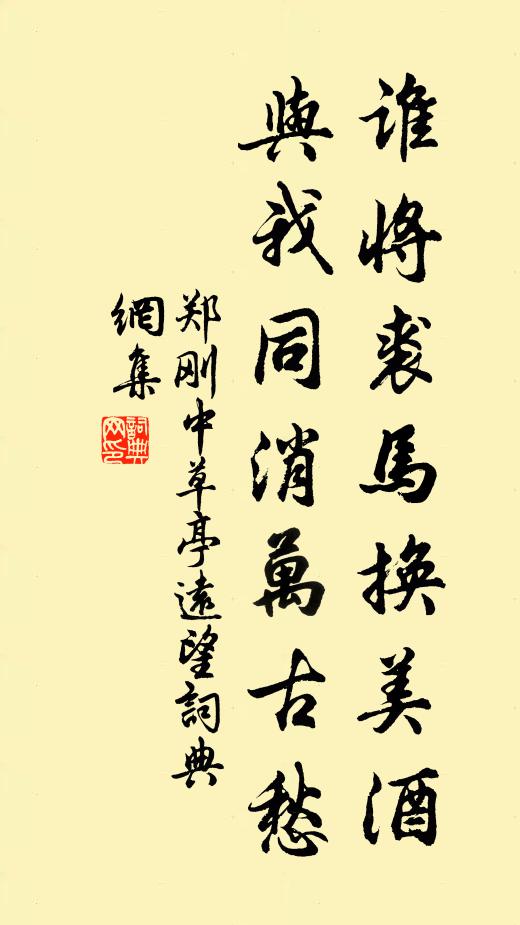 誰將裘馬換美酒
與我同消萬古愁
郑刚中草亭遠望詞典
網集
詞典
网印